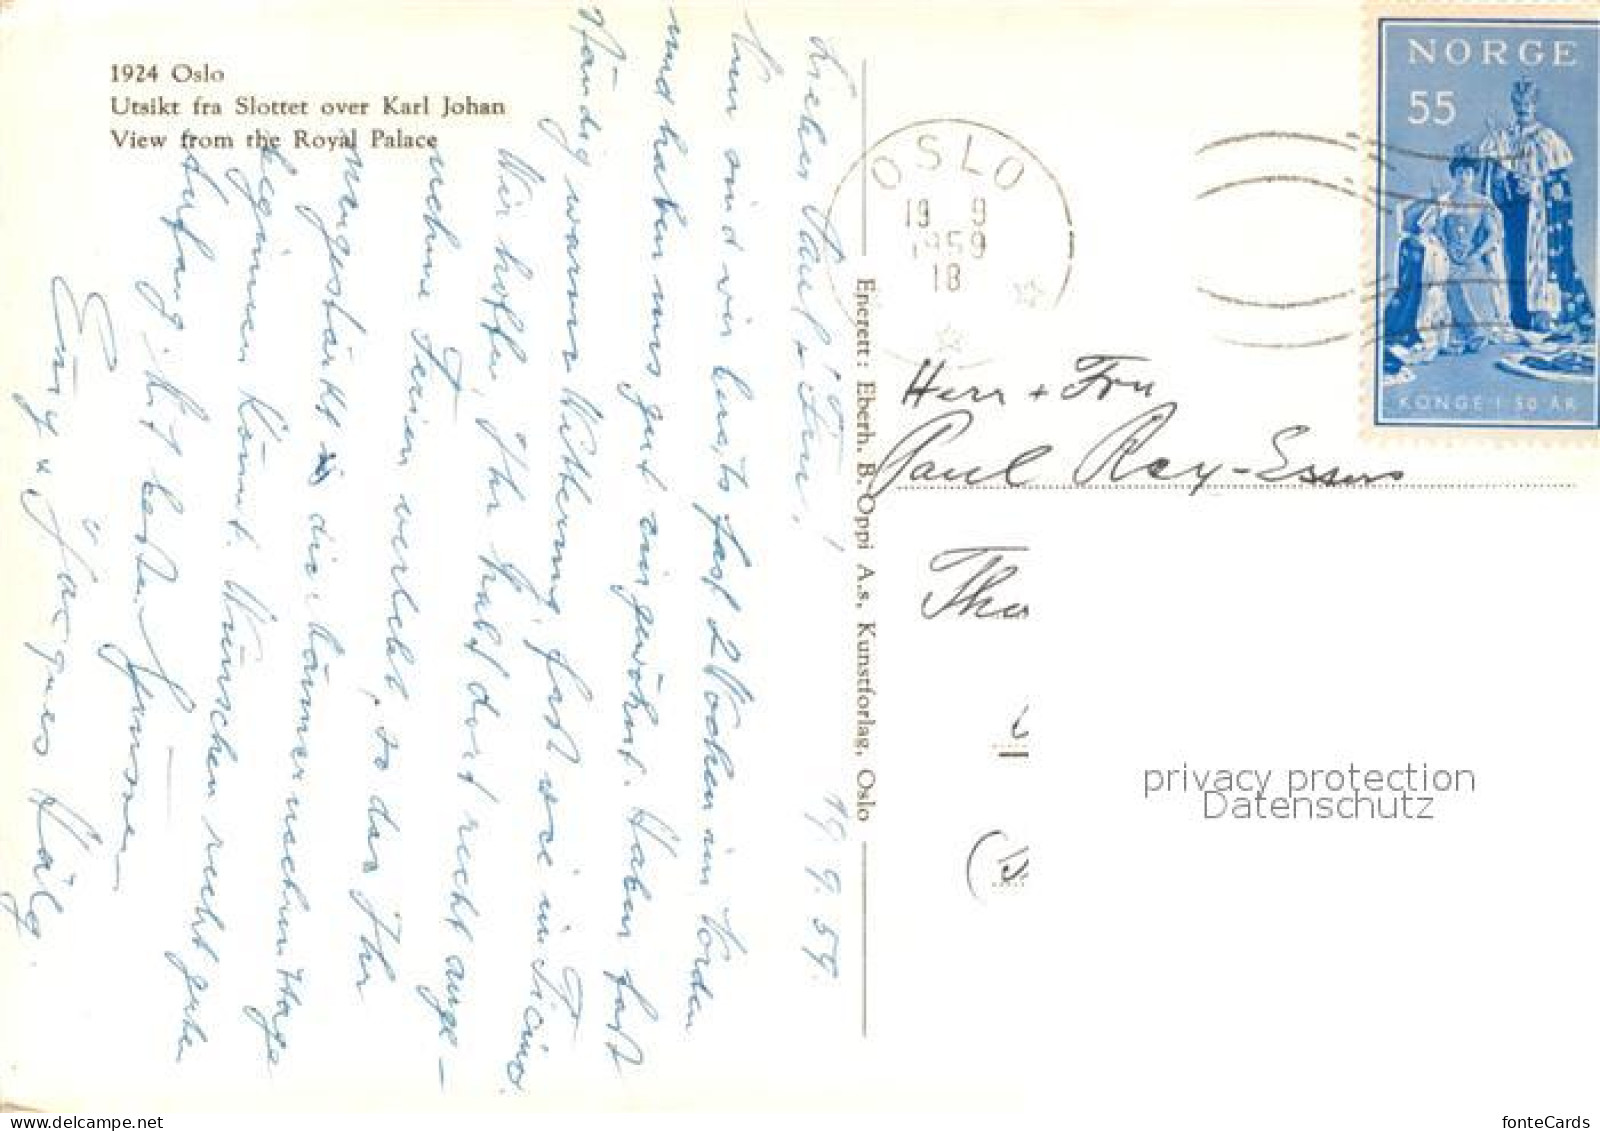 1924 Oslo
Utsikt fra Slottet over Karl Johan
View from the Royal Palace
19. 9. 59.
Lieber Paul + Frau!
Nun sind wir bereits fast 2 Wochen im Norden
und haben uns gut eingewöhnt. Haben fast
ständig warme Witterung, fast wie im Ticino.
Wir hoffen, Ihr habt dort recht ange-
nehme Ferien verlebt, so dass Ihr
neugestärkt in die kommenden Tage
beginnen könnt. Wünschen recht guten
Anfang. Mit besten Grüssen
Eury u.
Enerett: Eberh. B. Oppi A.s, Kunstforlag, Oslo
OSLO
19 9
1959
18
NORGE
55
KONGE I 50 ÅR
Herr + Frau
Paul Rey-Essers
Tha
privacy protection
Datenschutz
fonteCards